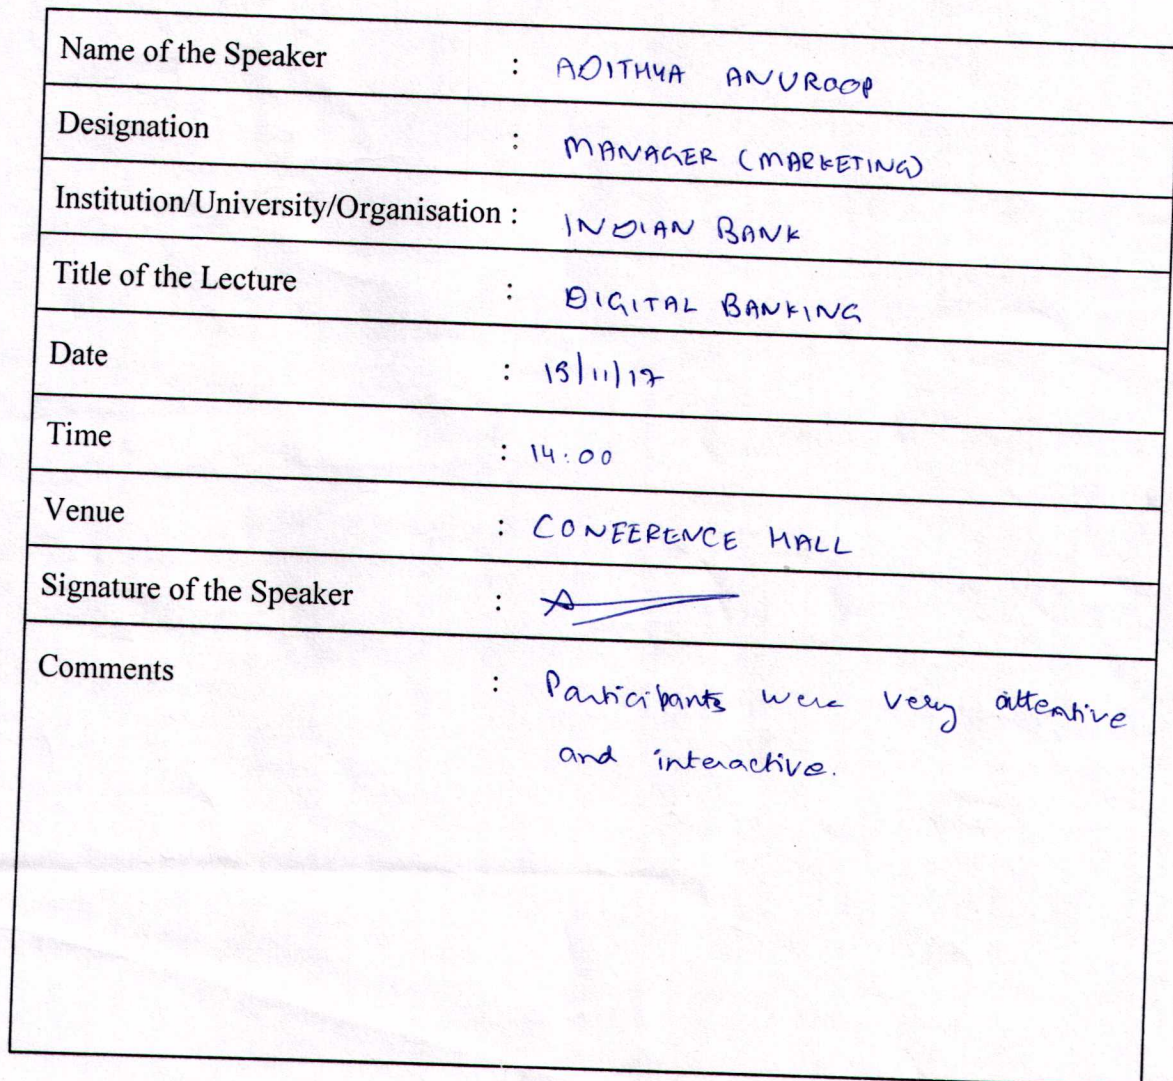 Name of the Speaker : ADITHYA ANUROOP
Designation : MANAGER (MARKETING)
Institution/University/Organisation : INDIAN BANK
Title of the Lecture : DIGITAL BANKING
Date :
Time : 14:00
Venue : CONFERENCE HALL
Signature of the Speaker :
Comments : Participants were very attentive
and interactive.